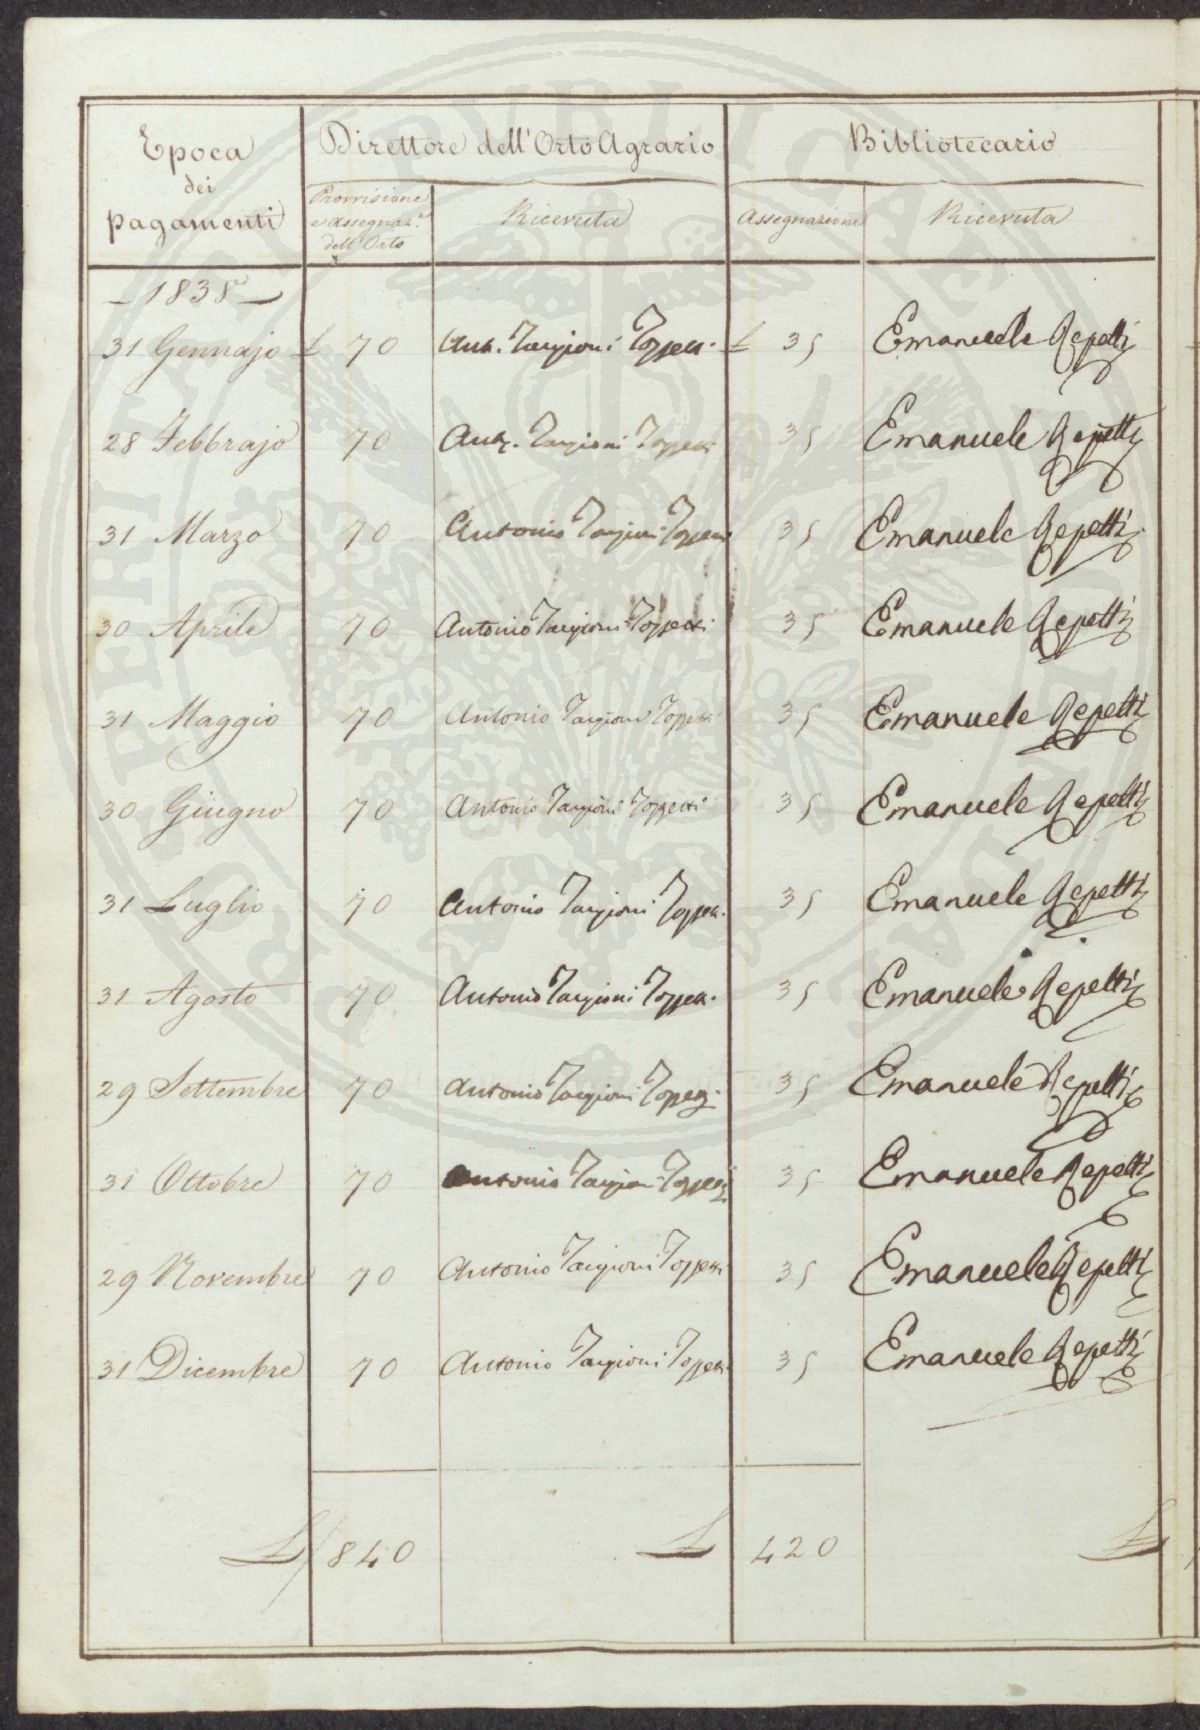 Epoca
dei
pagamenti
Direttore dell'Orto Agrario
Provvisione
e assegnaz.e
dell'Orto
Ricevuta
Bibliotecario
Assegnazione
Ricevuta
— 1838 —
31 Gennajo £ 70 Ant. Targioni Tozzetti £ 35 Emanuele Repetti
28 Febbrajo 70 Ant. Targioni Tozzetti 35 Emanuele Repetti
31 Marzo 70 Antonio Targioni Tozzetti 35 Emanuele Repetti
30 Aprile 70 Antonio Targioni Tozzetti 35 Emanuele Repetti
31 Maggio 70 Antonio Targioni Tozzetti 35 Emanuele Repetti
30 Giugno 70 Antonio Targioni Tozzetti 35 Emanuele Repetti
31 Luglio 70 Antonio Targioni Tozzetti 35 Emanuele Repetti
31 Agosto 70 Antonio Targioni Tozzetti 35 Emanuele Repetti
29 Settembre 70 Antonio Targioni Tozzetti 35 Emanuele Repetti
31 Ottobre 70 Antonio Targioni Tozzetti 35 Emanuele Repetti
29 Novembre 70 Antonio Targioni Tozzetti 35 Emanuele Repetti
31 Dicembre 70 Antonio Targioni Tozzetti 35 Emanuele Repetti
£ 840 £ 420 £